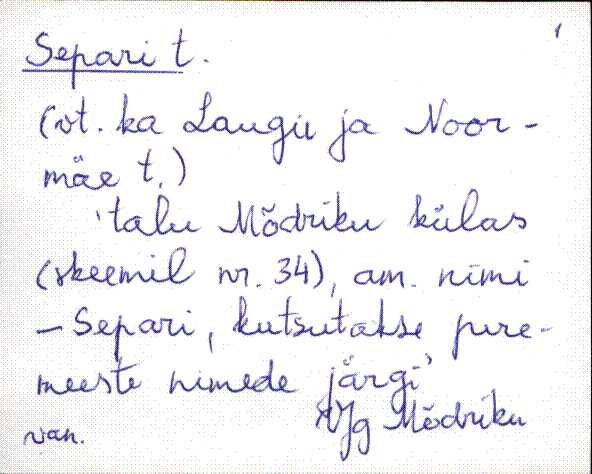 1
Separi t.
(vt. ka Laugu ja Noor-
mäe t.)
'talu Mõdriku külas
(skeemil nr. 34), am. nimi
– Separi, kutsutakse pere-
meeste nimede järgi'
VJg Mõdriku
van.